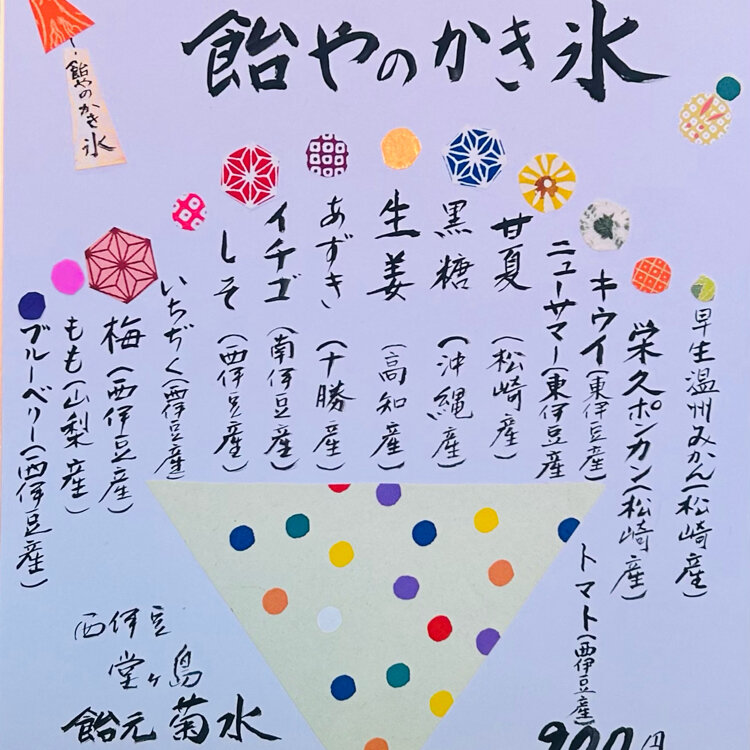 飴やのかき氷
飴やのかき氷
早生温州みかん(松崎産)
栄久ポンカン(松崎産)
キウイ(東伊豆産)
トマト(西伊豆産)
ニューサマー(東伊豆産
甘夏(松崎産)
黒糖(沖縄産)
生姜(高知産)
あずき(十勝産)
イチゴ(南伊豆産)
しそ(西伊豆産)
いちぢく(西伊豆産)
梅(西伊豆産)
もも(山梨産)
ブルーベリー(西伊豆産)
西伊豆
堂ヶ島
飴元菊水
900円